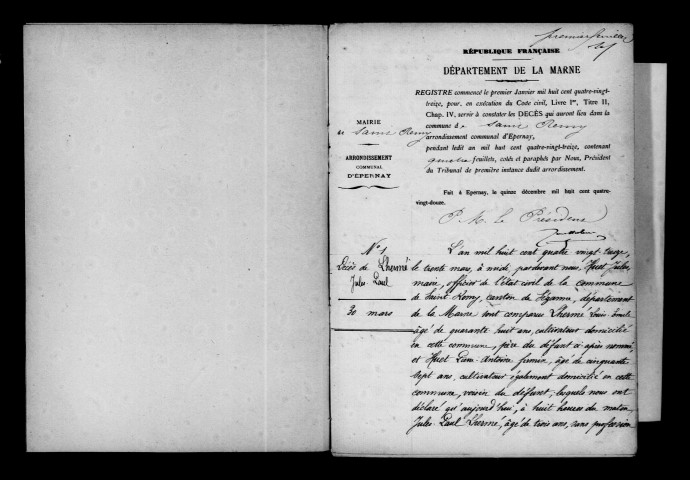 premier feuillet
RÉPUBLIQUE FRANÇAISE
DÉPARTEMENT DE LA MARNE
MAIRIE
de Saint Remy
ARRONDISSEMENT
COMMUNAL
D'ÉPERNAY
REGISTRE commencé le premier Janvier mil huit cent quatre-vingt-
treize, pour, en exécution du Code civil, Livre Ier, Titre II,
Chap. IV, servir à constater les DÉCÈS qui auront lieu dans la
commune de Saint Remy
arrondissement communal d'Epernay,
pendant ledit an mil huit cent quatre-vingt-treize, contenant
quatre feuillets, cotés et paraphés par Nous, Président
du Tribunal de première instance dudit arrondissement.
Fait à Epernay, le quinze décembre mil huit cent quatre-
vingt-douze.
P. M. le Président
N° 1
Décès de Lhermé
Jules-Paul
30 mars
L'an mil huit cent quatre vingt treize,
le trente mars, à midi, pardevant nous, Huet Jules,
maire, officier de l'état civil de la commune
de Saint-Remy, canton de Sézanne, département
de la Marne sont comparus Lhermé Louis Emile
âgé de quarante huit ans, cultivateur domicilié
en cette commune, père du défunt ci après nommé,
et Huet Antoine firmin, âgé de cinquante
sept ans, cultivateur également domicilié en cette
commune, voisin du défunt; lesquels nous ont
déclaré qu'aujourd'hui, à huit heures du matin,
Jules-Paul Lhermé, âgé de trois ans, sans profession